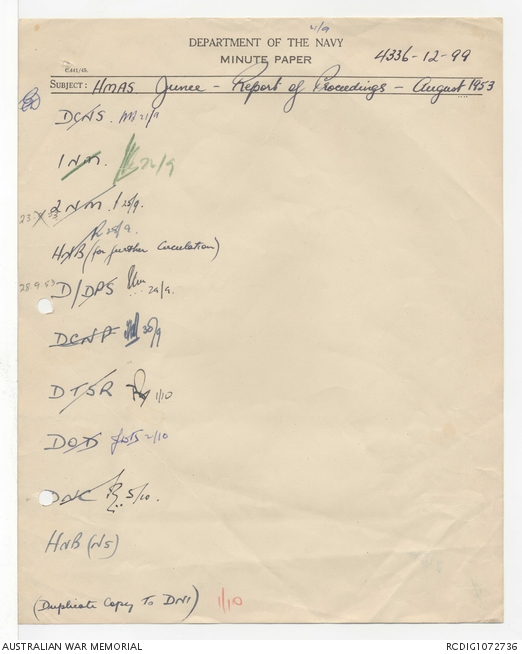 4/9
DEPARTMENT OF THE NAVY
MINUTE PAPER
4336-12-99
SUBJECT: HMAS Junee - Report of Proceedings - August 1953
DCNS. 21/9
1NM. 22/9
2NM 23/9.
28/9.
HNB (for further Circulation)
28.9.53
D/DPS 29/9.
DCNP 30/9
DTSR 1/10
DOD 2/10
DNC 5/10.
HNB (NS)
(Duplicate Copy To DNI) 1/10
AUSTRALIAN WAR MEMORIAL
RCDIG1072736